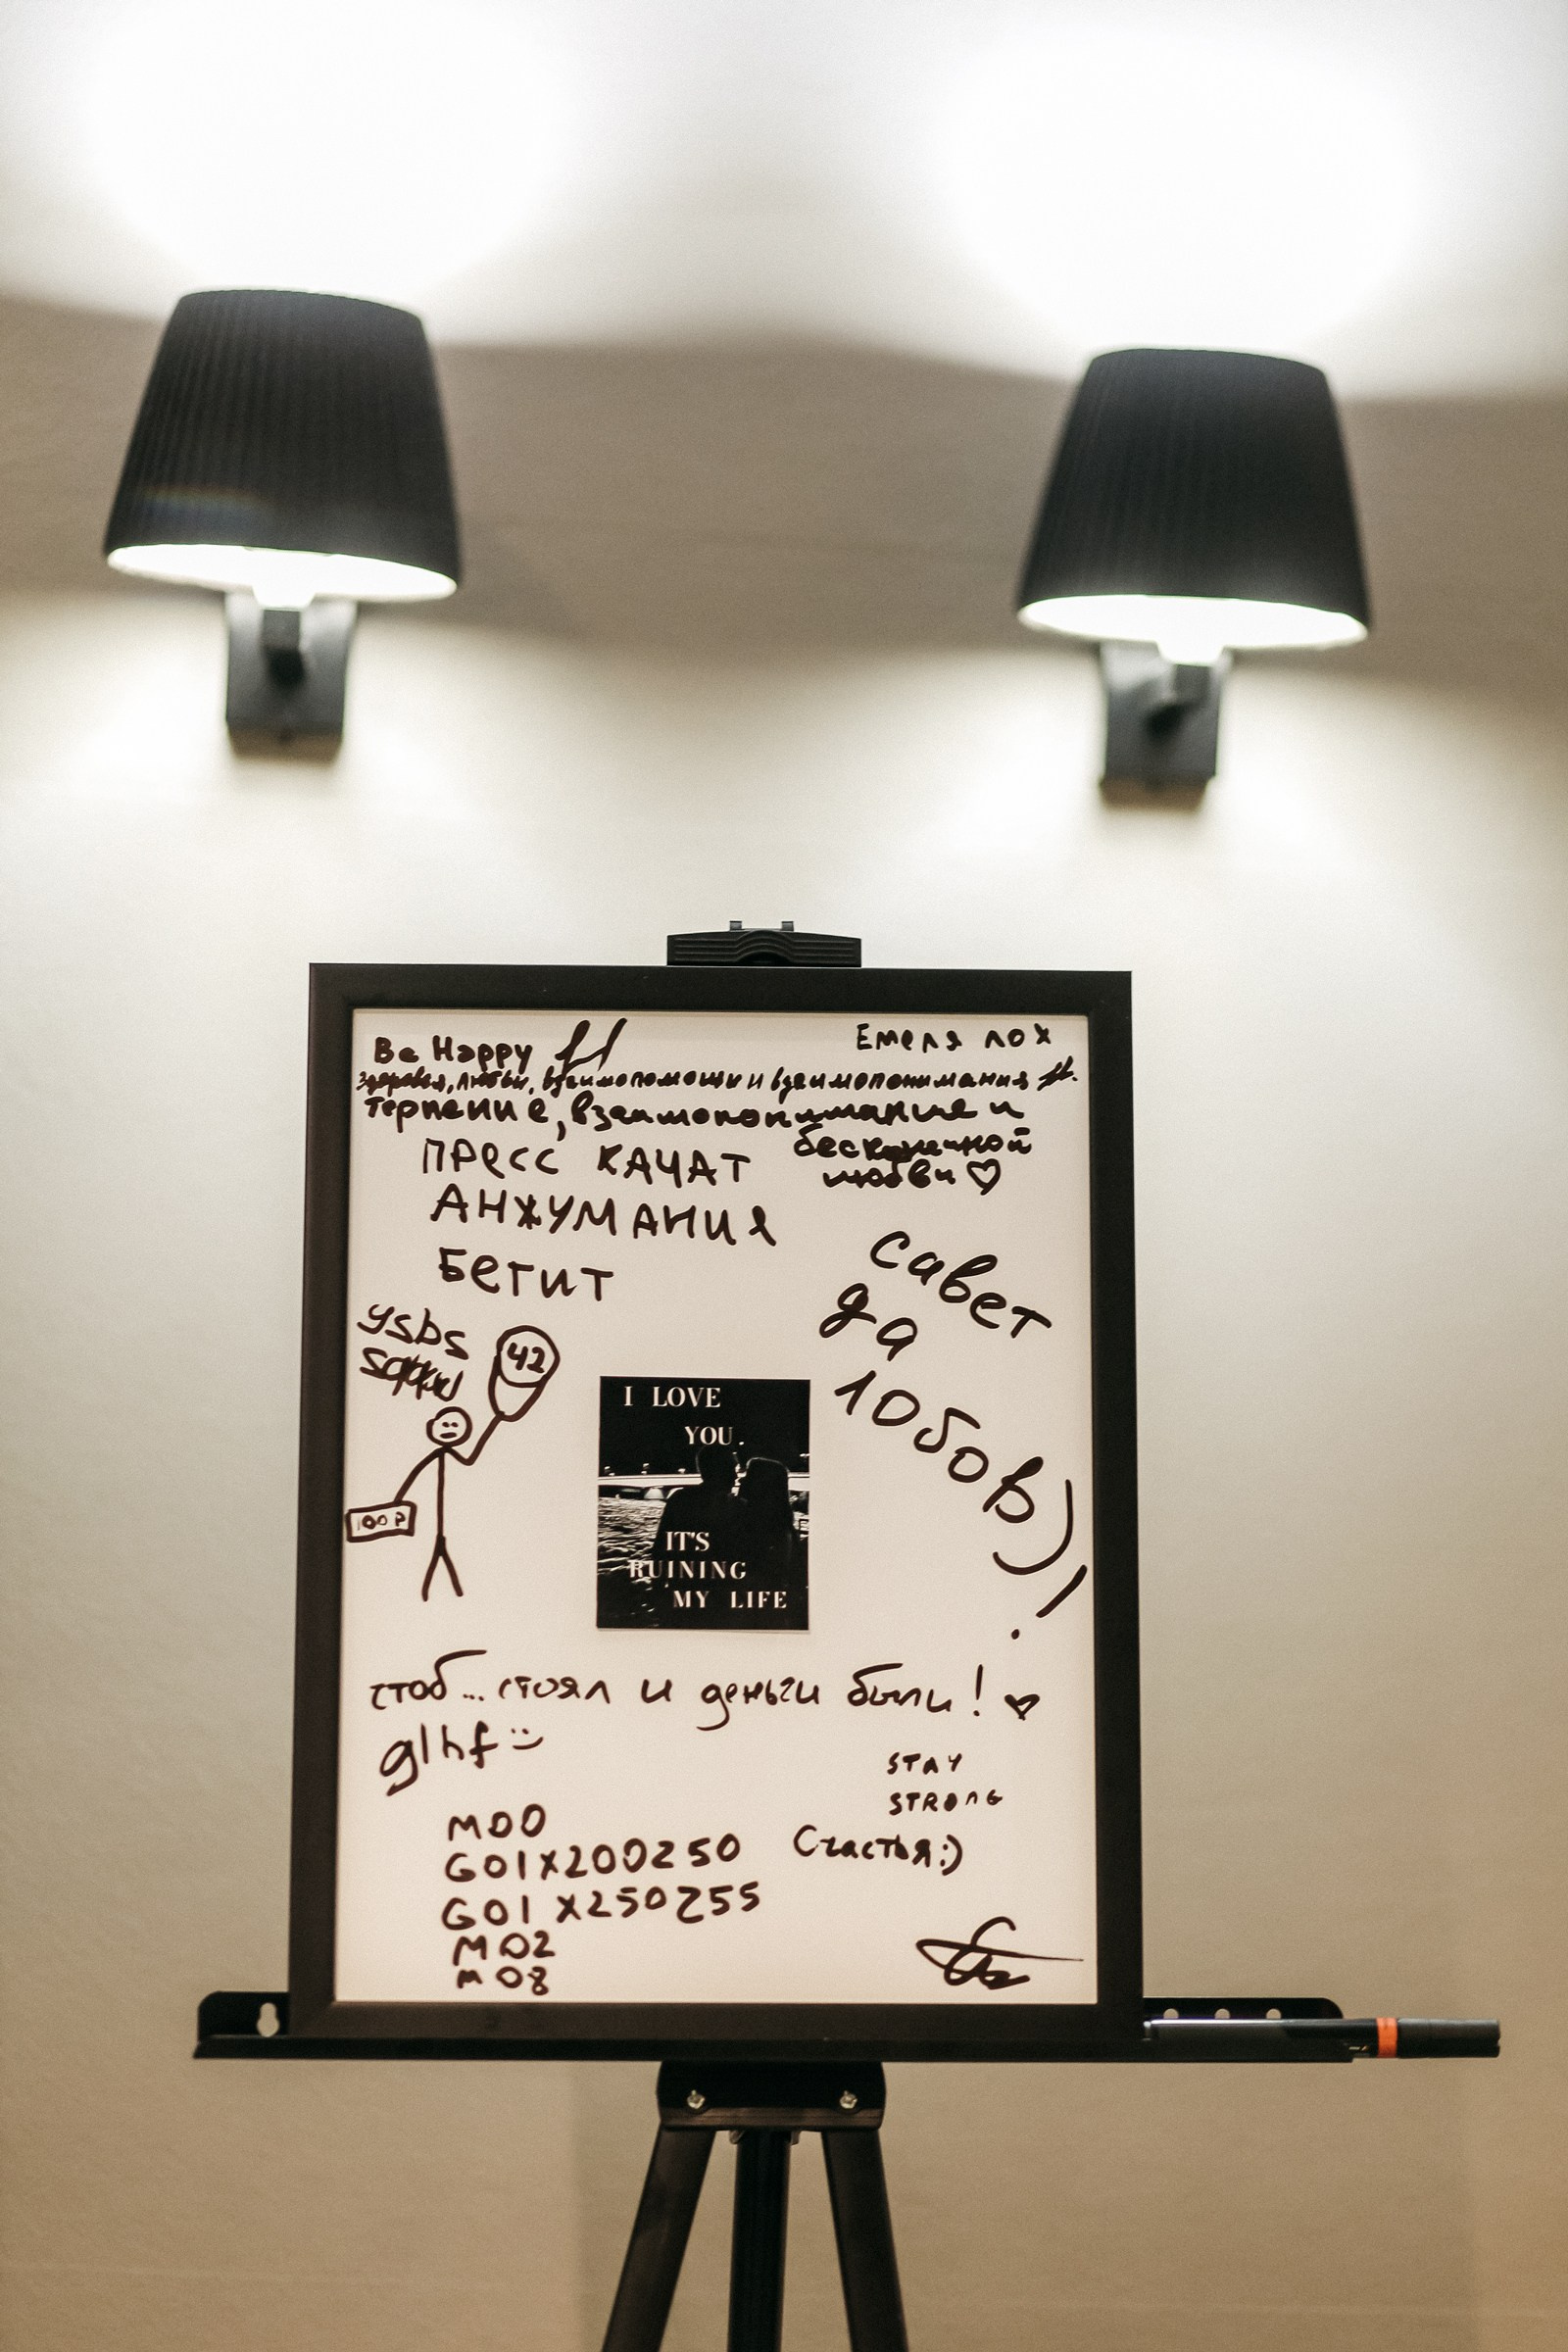 Be Happy
Емеля лох
здоровья, любви, взаимопомощи и взаимопонимания
Терпение, взаимопонимание и
бесконечной
любви ♡
ПРЕСС КАЧАТ
АНЖУМАНИЯ
БЕГИТ
савет
да
любов)!
ysbs
42
100 ₽
I LOVE
YOU.
IT'S
RUINING
MY LIFE
чтоб... стоял и деньги были! ♡
glhf :)
STAY
STRONG
Счастья:)
M00
G01X200Z50
G01 X250Z55
M02
M08